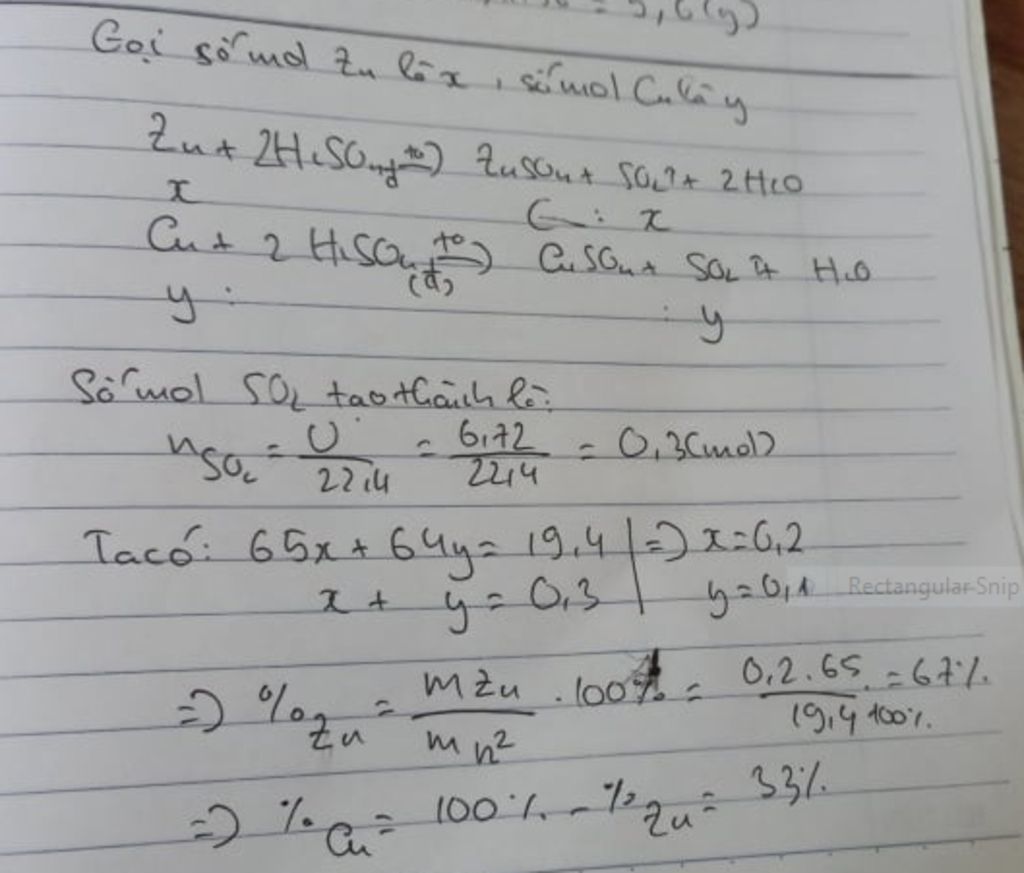 = 5,6(y)
Gọi số mol Zn là x, số mol Cu là y
Zn + 2H₂SO₄đ (t°)⇒ ZnSO₄ + SO₂↑ + 2H₂O
x : x
Cu + 2 H₂SO₄ (đ) t°⇒ CuSO₄ + SO₂↑ + H₂O
y : : y
Số mol SO₂ tạo thành là:
nSO₂ = V/22,4 = 6,72/22,4 = 0,3(mol)
Ta có: 65x + 64y = 19,4 | ⇒ x = 0,2
x + y = 0,3 | y = 0,1
Rectangular Snip
⇒ %Zn = mZn/mh² . 100% = 0,2.65/19,4 . 100% = 67%
⇒ %Cu = 100% - %Zn = 33%